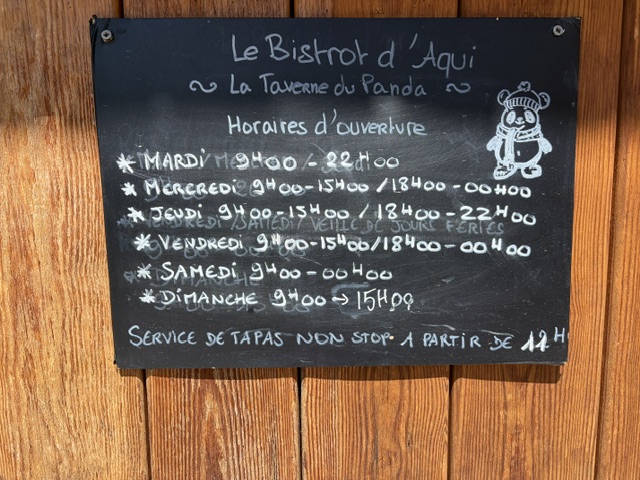 Le Bistrot d'Aqui
~ La Taverne du Panda ~
Horaires d'ouverture
* MARDI 9H00 - 22H00
* MERCREDI 9H00-15H00 / 18H00 - 00H00
* JEUDI 9H00-15H00 / 18H00 - 22H00
VENDREDI / SAMEDI / VEILLE DE JOURS FÉRIÉS
* VENDREDI 9H00-15H00/18H00-00H00
* SAMEDI 9H00 - 00H00
* DIMANCHE 9H00 → 15H00
SERVICE DE TAPAS NON STOP A PARTIR DE H